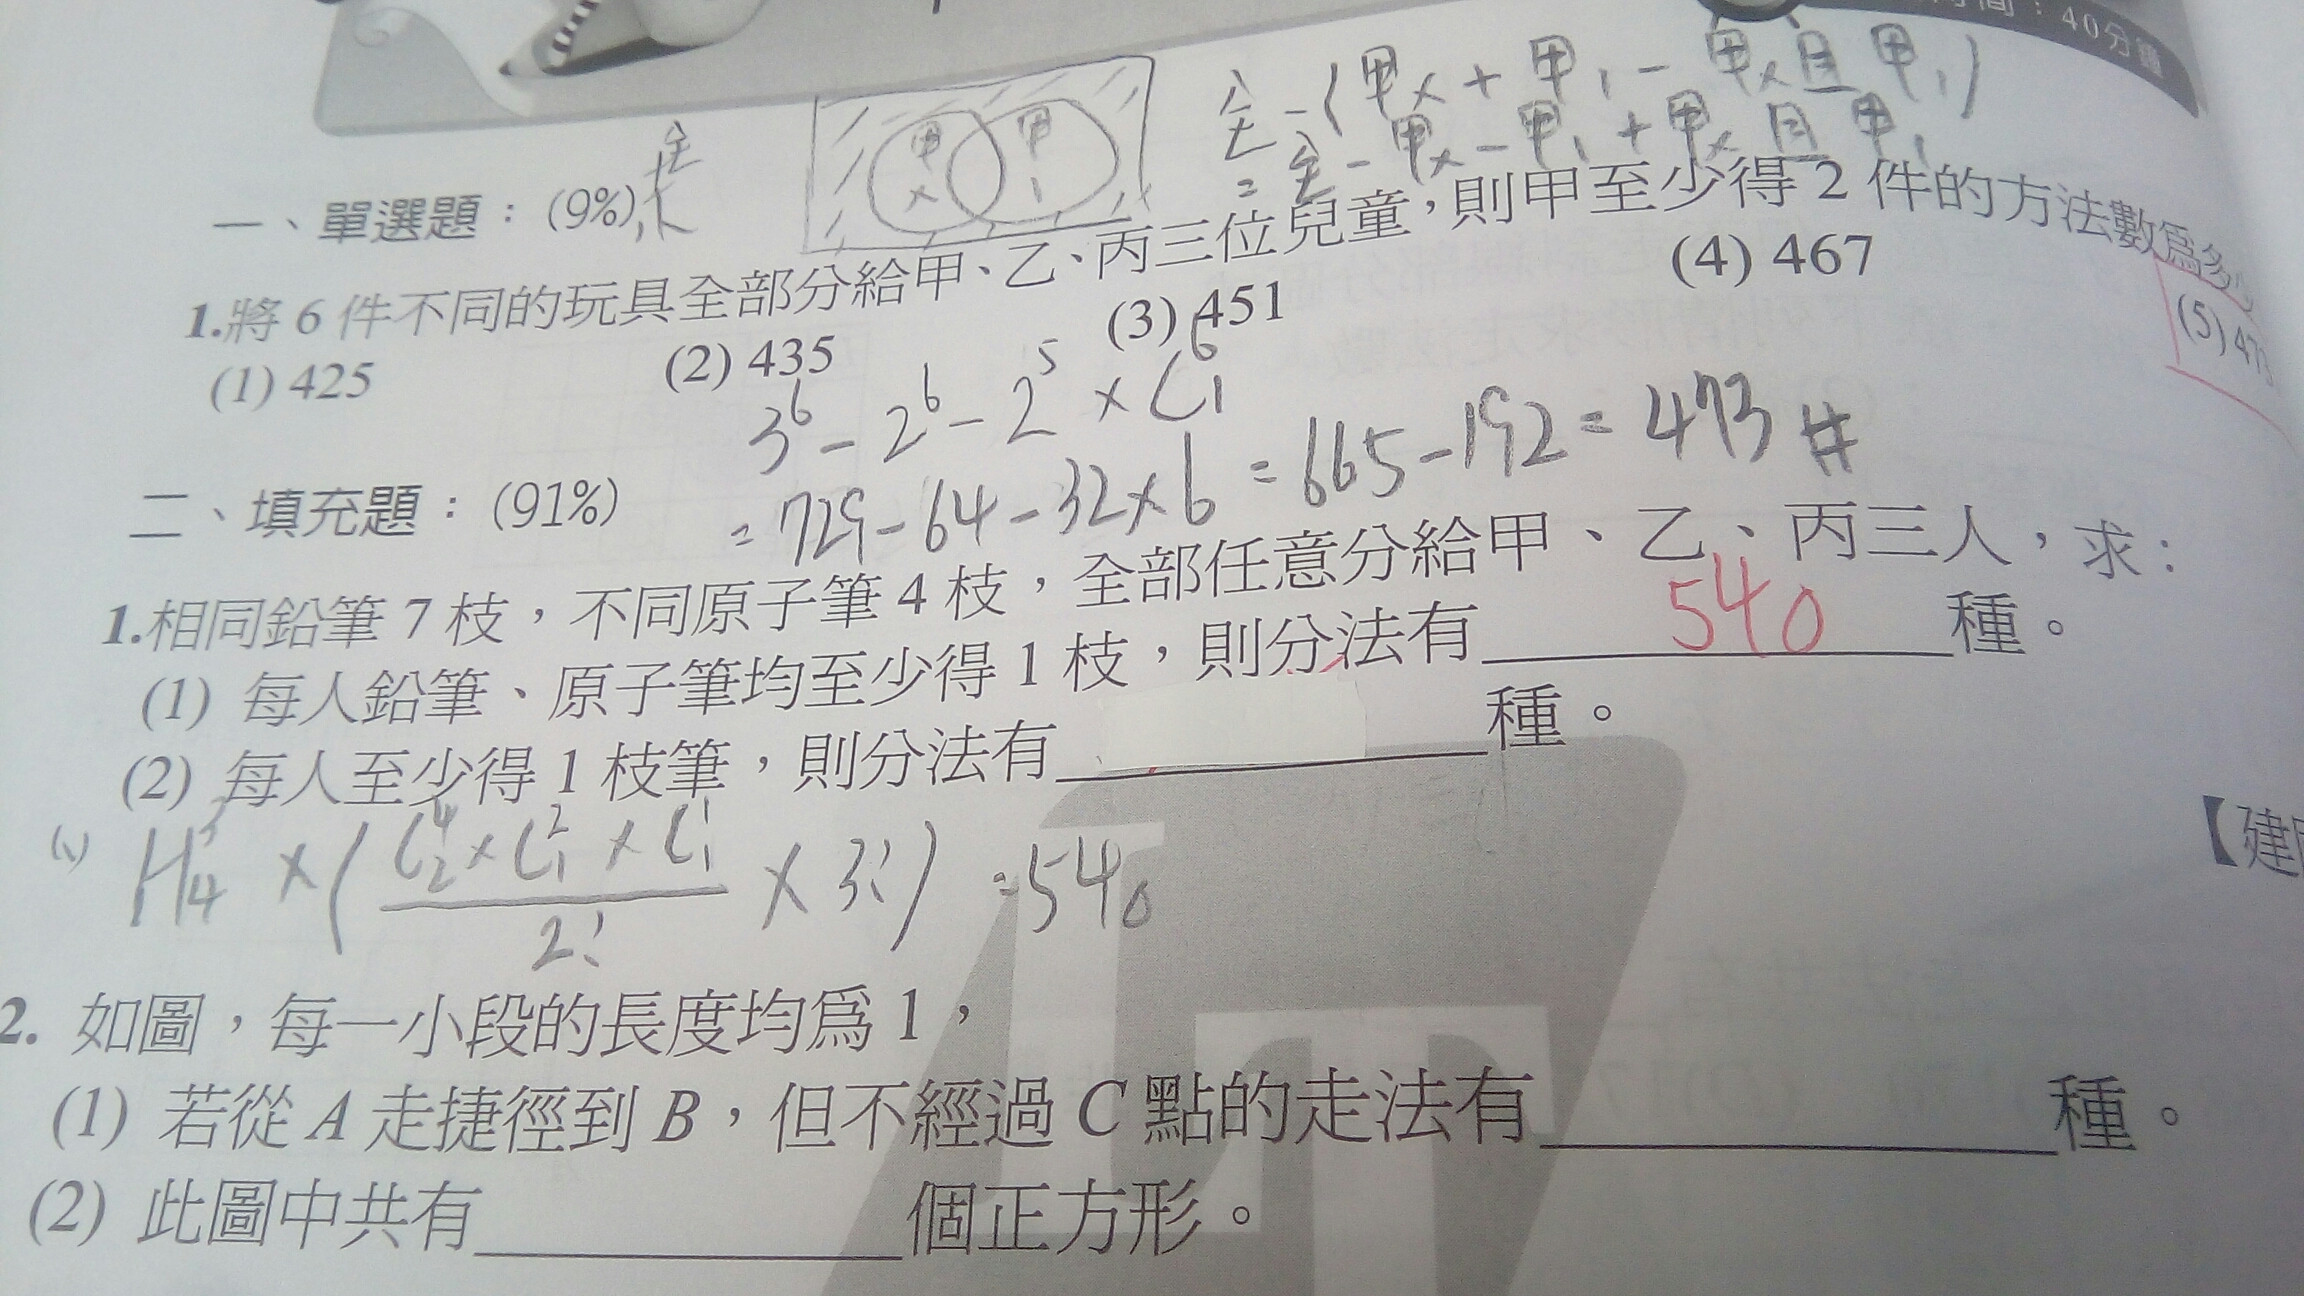 時間：40分鐘
全 - (甲x + 甲1 - 甲x且甲1)
= 全 - 甲x - 甲1 + 甲x且甲1
甲x 甲1
一、單選題：(9%)
1.將 6 件不同的玩具全部分給甲、乙、丙三位兒童，則甲至少得 2 件的方法數為多少
(1) 425 (2) 435 (3) 451 (4) 467 (5) 473
3^6 - 2^6 - 2^5 × C^6_1
= 729 - 64 - 32×6 = 665 - 192 = 473 #
二、填充題：(91%)
1.相同鉛筆 7 枝，不同原子筆 4 枝，全部任意分給甲、乙、丙三人，求：
(1) 每人鉛筆、原子筆均至少得 1 枝，則分法有 540 種。
(2) 每人至少得 1 枝筆，則分法有 種。
(1) H^3_4 × ( C^4_2 × C^2_1 × C^1_1 / 2! × 3! ) = 540
【建
2. 如圖，每一小段的長度均為 1，
(1) 若從 A 走捷徑到 B，但不經過 C 點的走法有 種。
(2) 此圖中共有 個正方形。